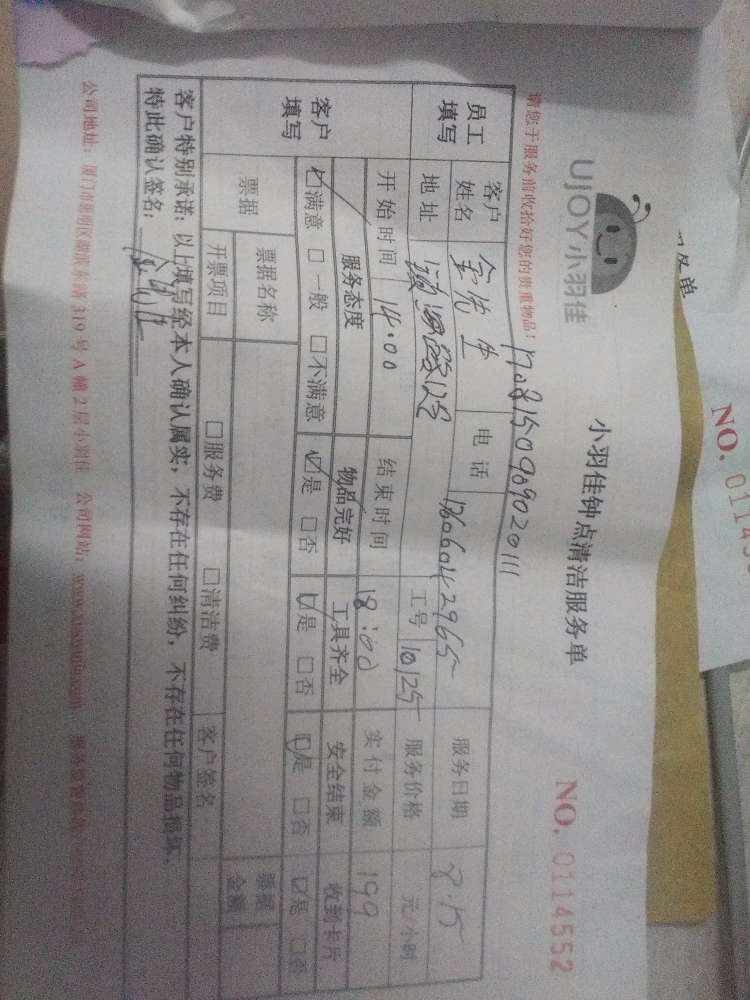 UJOY小羽佳
小羽佳钟点清洁服务单
NO. 0114552
请您于服务前收拾好您的贵重物品!
1708150909020111
员工填写
客户姓名
电话
服务日期 8.15
地址
工号 10125
服务价格 元/小时
客户填写
开始时间 14:00 结束时间 18:00 实付金额 199
服务态度 物品完好 工具齐全 安全结束 收到卡片
☑满意 □一般 □不满意 ☑是 □否 ☑是 □否 ☑是 □否 ☑是 □否
票据
票据名称
票据金额
开票项目 □服务费 □清洁费 客户签名
客户特别承诺:以上填写经本人确认属实,不存在任何纠纷,不存在任何物品损坏,
特此确认签名:
公司地址:厦门市思明区湖滨东路319号A幢2层小羽佳 公司网站:
NO. 0114